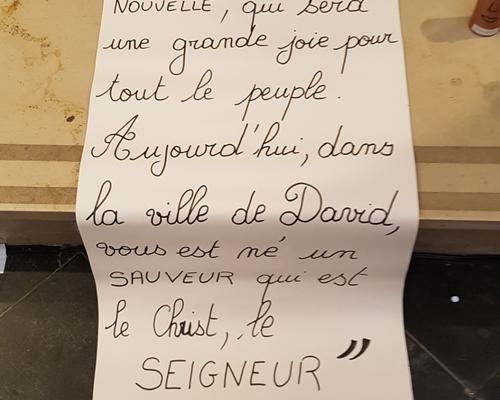 NOUVELLE, qui sera
une grande joie pour
tout le peuple.
Aujourd'hui, dans
la ville de David,
vous est né un
SAUVEUR qui est
le Christ, le
SEIGNEUR"